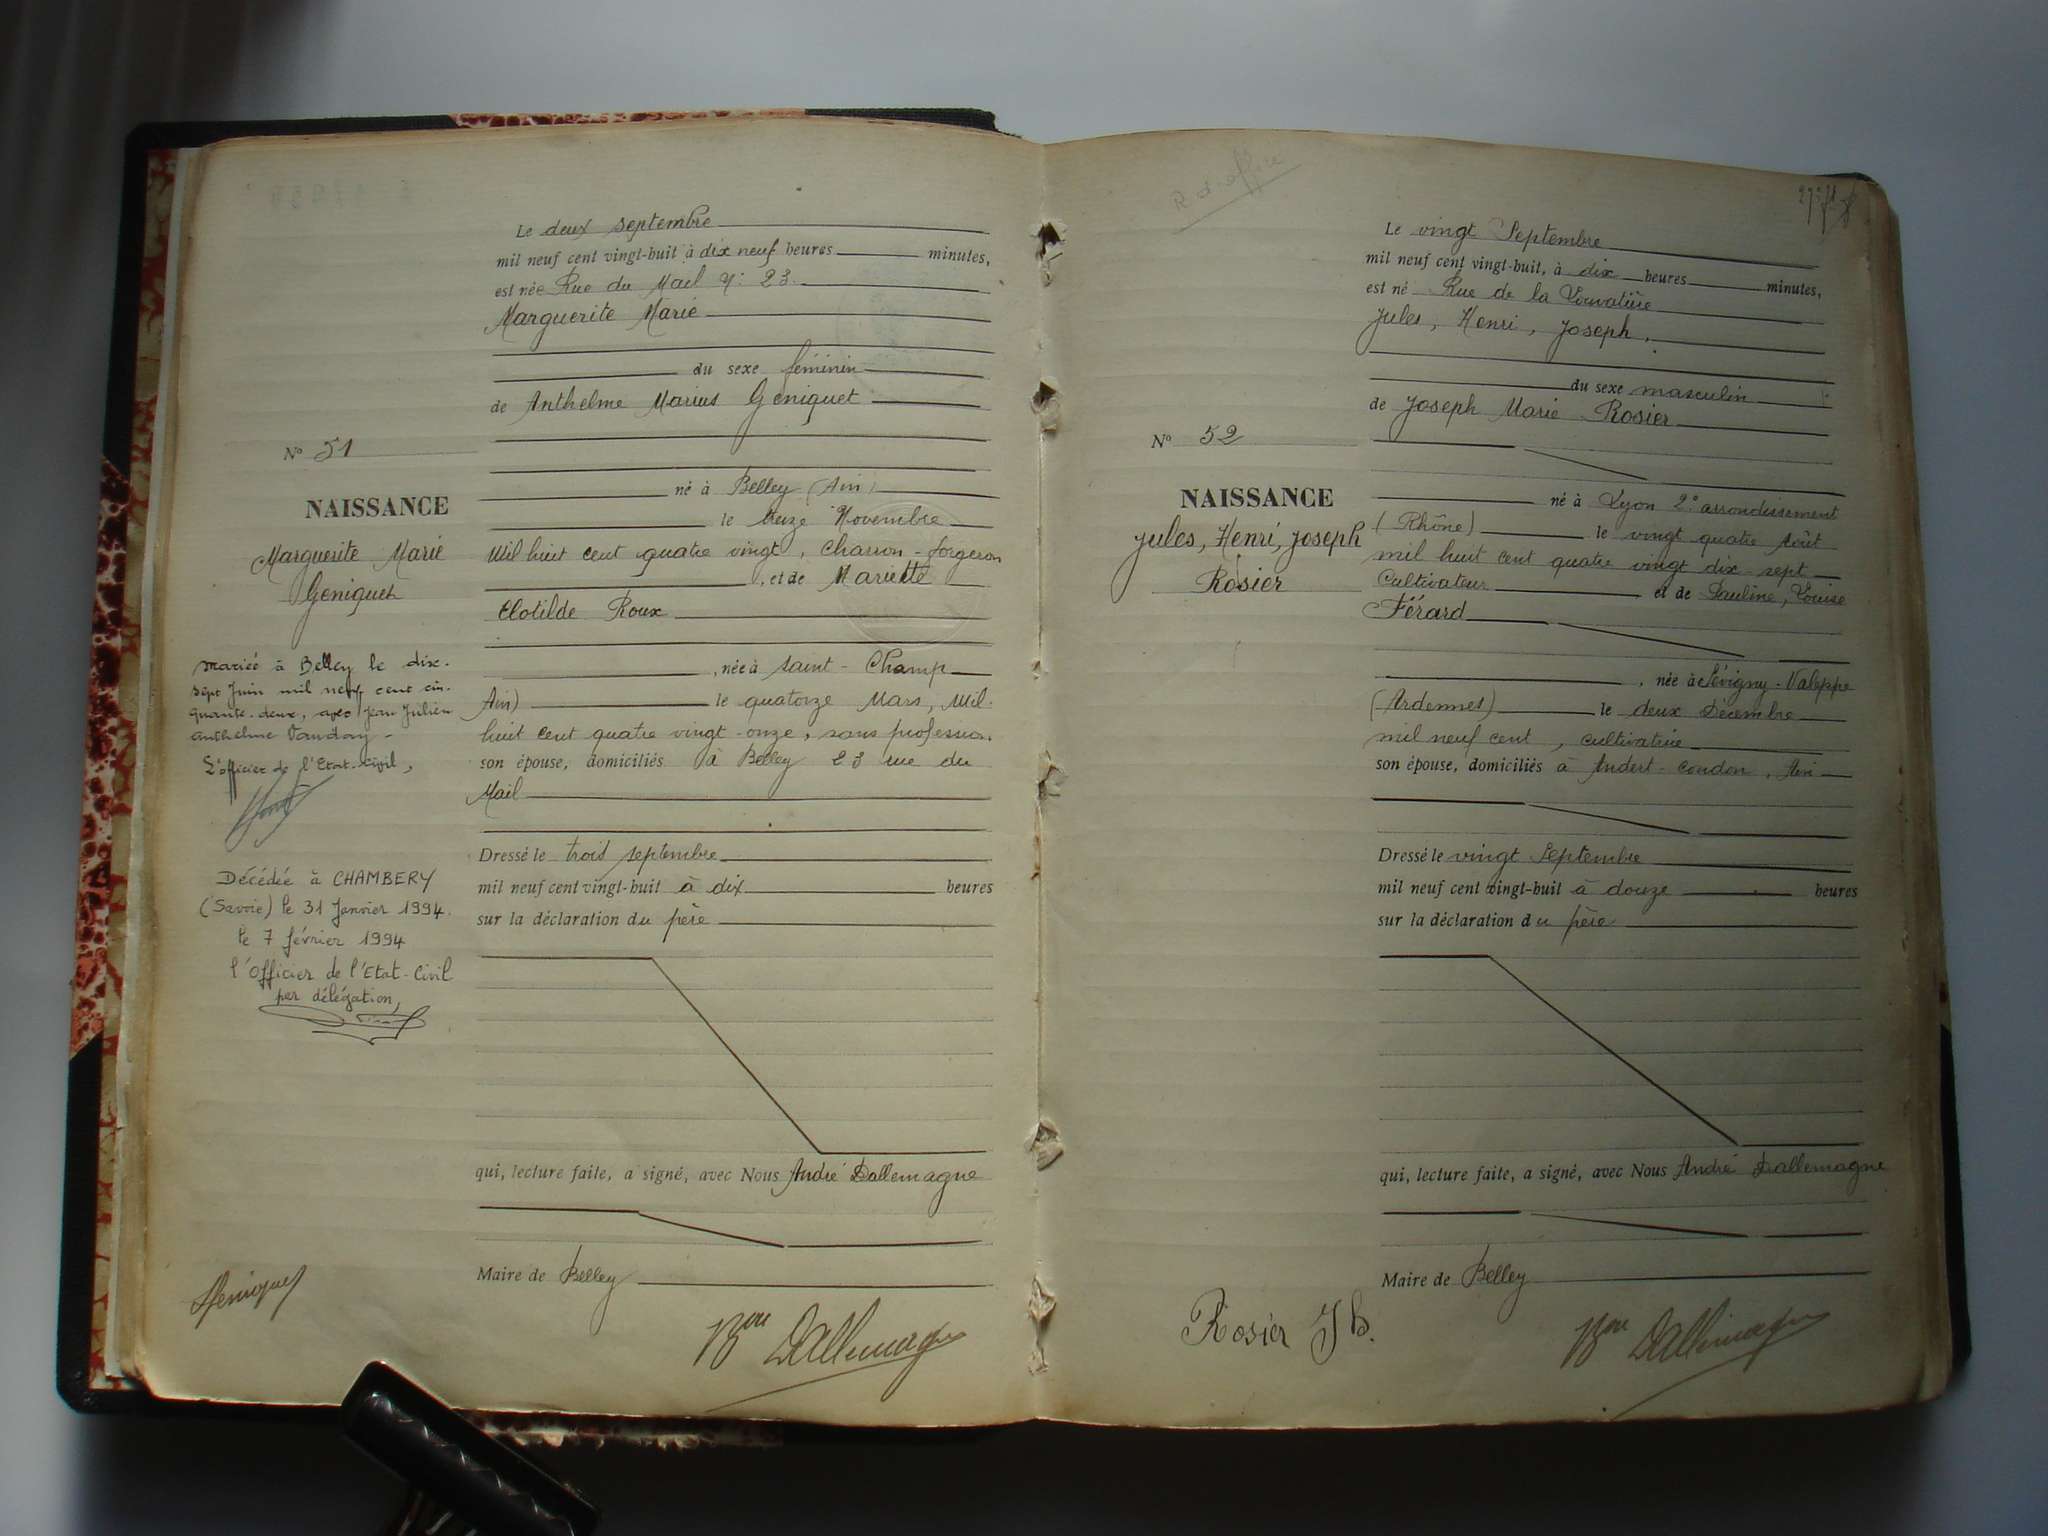 Le deux septembre
mil neuf cent vingt-huit à dix neuf heures minutes,
est née Rue du Mail N: 23
Marguerite Marie
du sexe féminin
de Anthelme Marius Geniquet
N° 51
né à Belley (Ain)
NAISSANCE
le treize Novembre
Marguerite Marie
Mil huit cent quatre vingt, Charron-forgeron
, et de Mariette
Geniquet
Clotilde Roux
, née à Saint-Champ
Ain) le quatorze Mars, Mil-
huit cent quatre vingt-onze, sans profession,
son épouse, domiciliés à Belley 23 rue du
Mail
mariée à Belley le dix-
sept Juin mil neuf cent cin-
quante-deux, avec Jean Julien
Anthelme
L'officier de l'Etat-Civil,
Dressé le trois septembre
mil neuf cent vingt-huit à dix heures
sur la déclaration du père
Décédée à CHAMBERY
(Savoie) le 31 Janvier 1994.
le 7 février 1994
l'Officier de l'Etat-Civil
par délégation,
qui, lecture faite, a signé, avec Nous André Dallemagne
Maire de Belley
Geniquet
Bon Dallemagne
R d'office
Le vingt Septembre
mil neuf cent vingt-huit, à dix heures minutes,
est né Rue de la Louvatière
Jules, Henri, Joseph,
du sexe masculin
de Joseph Marie Rosier
N° 52
né à Lyon 2° arrondissement
NAISSANCE
(Rhône) le vingt quatre Août
Jules, Henri, Joseph
Rosier
mil huit cent quatre vingt dix-sept
Cultivateur et de Pauline, Louise
Férard
, née à Sévigny-Valeppe
(Ardennes) le deux Décembre
mil neuf cent, cultivatrice
son épouse, domiciliés à Andert-Condon, Ain
Dressé le vingt Septembre
mil neuf cent vingt-huit à douze heures
sur la déclaration du père
qui, lecture faite, a signé, avec Nous André Dallemagne
Maire de Belley
Rosier Jh.
Bon Dallemagne